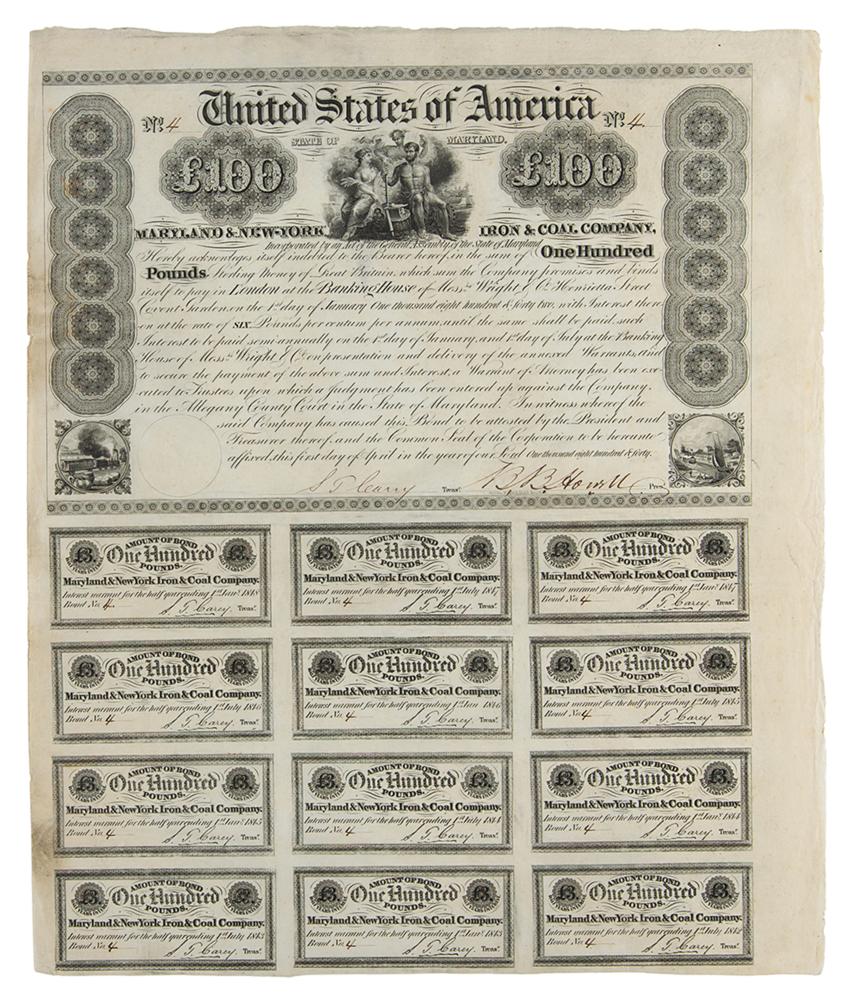 United States of America
No. 4
No. 4.
STATE OF MARYLAND.
£100
£100
MARYLAND & NEW-YORK IRON & COAL COMPANY,
Incorporated by an Act of the General Assembly of the State of Maryland
Hereby acknowleges itself indebted to the Bearer hereof, in the sum of One Hundred
Pounds Sterling Money of Great Britain, which sum the Company promises and binds
itself to pay in London at the Banking House of Messrs. Wright & Co. Henrietta Street
Covent Garden, on the 1st day of January One thousand eight hundred & forty two, with Interest there-
on at the rate of SIX Pounds per centum per annum, until the same shall be paid, such
Interest to be paid semi-annually on the 1st day of January, and 1st day of July at the Banking
House of Messrs. Wright & Co. on presentation and delivery of the annexed Warrants, and
to secure the payment of the above sum and Interest, a Warrant of Attorney has been exe-
cuted to Trustees upon which a Judgment has been entered up against the Company,
in the Allegany County Court in the State of Maryland. In witness whereof the
said Company has caused this Bond to be attested by the President and
Treasurer thereof, and the Common Seal of the Corporation to be hereunto
affixed, this first day of April in the year of our Lord One thousand eight hundred & forty.
S. T. Carey Treasr. B. B. Howell Prest.
AMOUNT OF BOND
£3. One Hundred £3.
POUNDS.
Maryland & New York Iron & Coal Company.
Interest warrant for the half year ending 1st Jany. 1848
Bond No. 4 S. T. Carey. Treasr.
AMOUNT OF BOND
£3. One Hundred £3.
POUNDS.
Maryland & New York Iron & Coal Company.
Interest warrant for the half year ending 1st July 1847
Bond No. 4 S. T. Carey. Treasr.
AMOUNT OF BOND
£3. One Hundred £3.
POUNDS.
Maryland & New York Iron & Coal Company.
Interest warrant for the half year ending 1st Jany. 1847
Bond No. 4 S. T. Carey. Treasr.
AMOUNT OF BOND
£3. One Hundred £3.
POUNDS.
Maryland & New York Iron & Coal Company.
Interest warrant for the half year ending 1st July 1846
Bond No. 4 S. T. Carey. Treasr.
AMOUNT OF BOND
£3. One Hundred £3.
POUNDS.
Maryland & New York Iron & Coal Company.
Interest warrant for the half year ending 1st Jan 1846
Bond No. 4 S. T. Carey. Treasr.
AMOUNT OF BOND
£3. One Hundred £3.
POUNDS.
Maryland & New York Iron & Coal Company.
Interest warrant for the half year ending 1st July 1845
Bond No. 4 S. T. Carey. Treasr.
AMOUNT OF BOND
£3. One Hundred £3.
POUNDS.
Maryland & New York Iron & Coal Company.
Interest warrant for the half year ending 1st Jany. 1845
Bond No. 4 S. T. Carey. Treasr.
AMOUNT OF BOND
£3. One Hundred £3.
POUNDS.
Maryland & New York Iron & Coal Company.
Interest warrant for the half year ending 1st July 1844
Bond No. 4 S. T. Carey. Treasr.
AMOUNT OF BOND
£3. One Hundred £3.
POUNDS.
Maryland & New York Iron & Coal Company.
Interest warrant for the half year ending 1st Jany. 1844
Bond No. 4 S. T. Carey. Treasr.
AMOUNT OF BOND
£3. One Hundred £3.
POUNDS.
Maryland & New York Iron & Coal Company.
Interest warrant for the half year ending 1st July 1843
Bond No. 4 S. T. Carey. Treasr.
AMOUNT OF BOND
£3. One Hundred £3.
POUNDS.
Maryland & New York Iron & Coal Company.
Interest warrant for the half year ending 1st Jany. 1843
Bond No. 4 S. T. Carey. Treasr.
AMOUNT OF BOND
£3. One Hundred £3.
POUNDS.
Maryland & New York Iron & Coal Company.
Interest warrant for the half year ending 1st July 1842
Bond No. 4 S. T. Carey. Treasr.